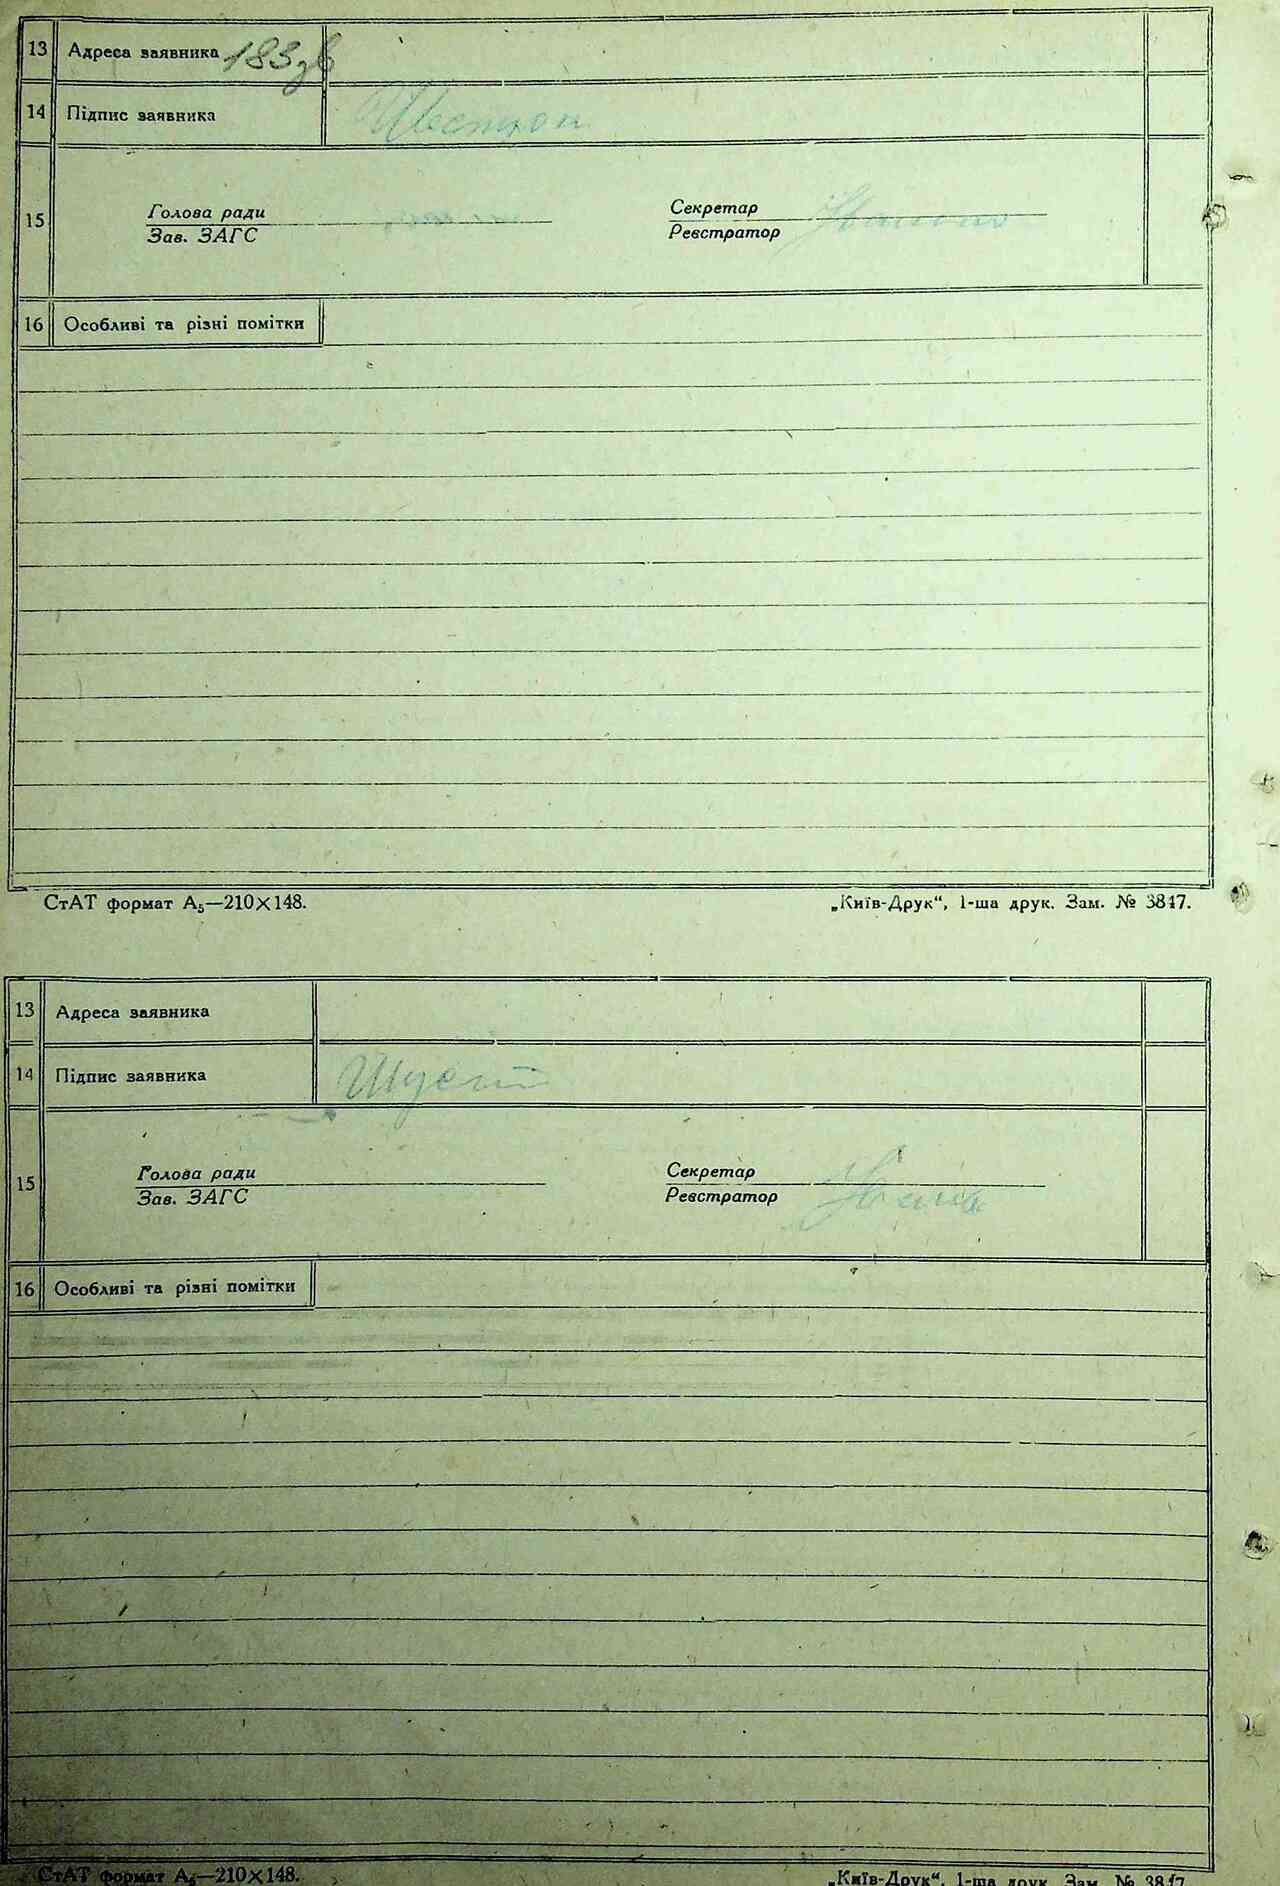 13 Адреса заявника 183зв
14 Підпис заявника
15 Голова ради Секретар
Зав. ЗАГС Реєстратор
16 Особливі та різні помітки
СтАТ формат А5—210×148. „Київ-Друк“, 1-ша друк. Зам. № 3847.
13 Адреса заявника
14 Підпис заявника Шуст
15 Голова ради Секретар
Зав. ЗАГС Реєстратор
16 Особливі та різні помітки
СтАТ формат А5—210×148. „Київ-Друк“, 1-ша друк. Зам. № 3847.